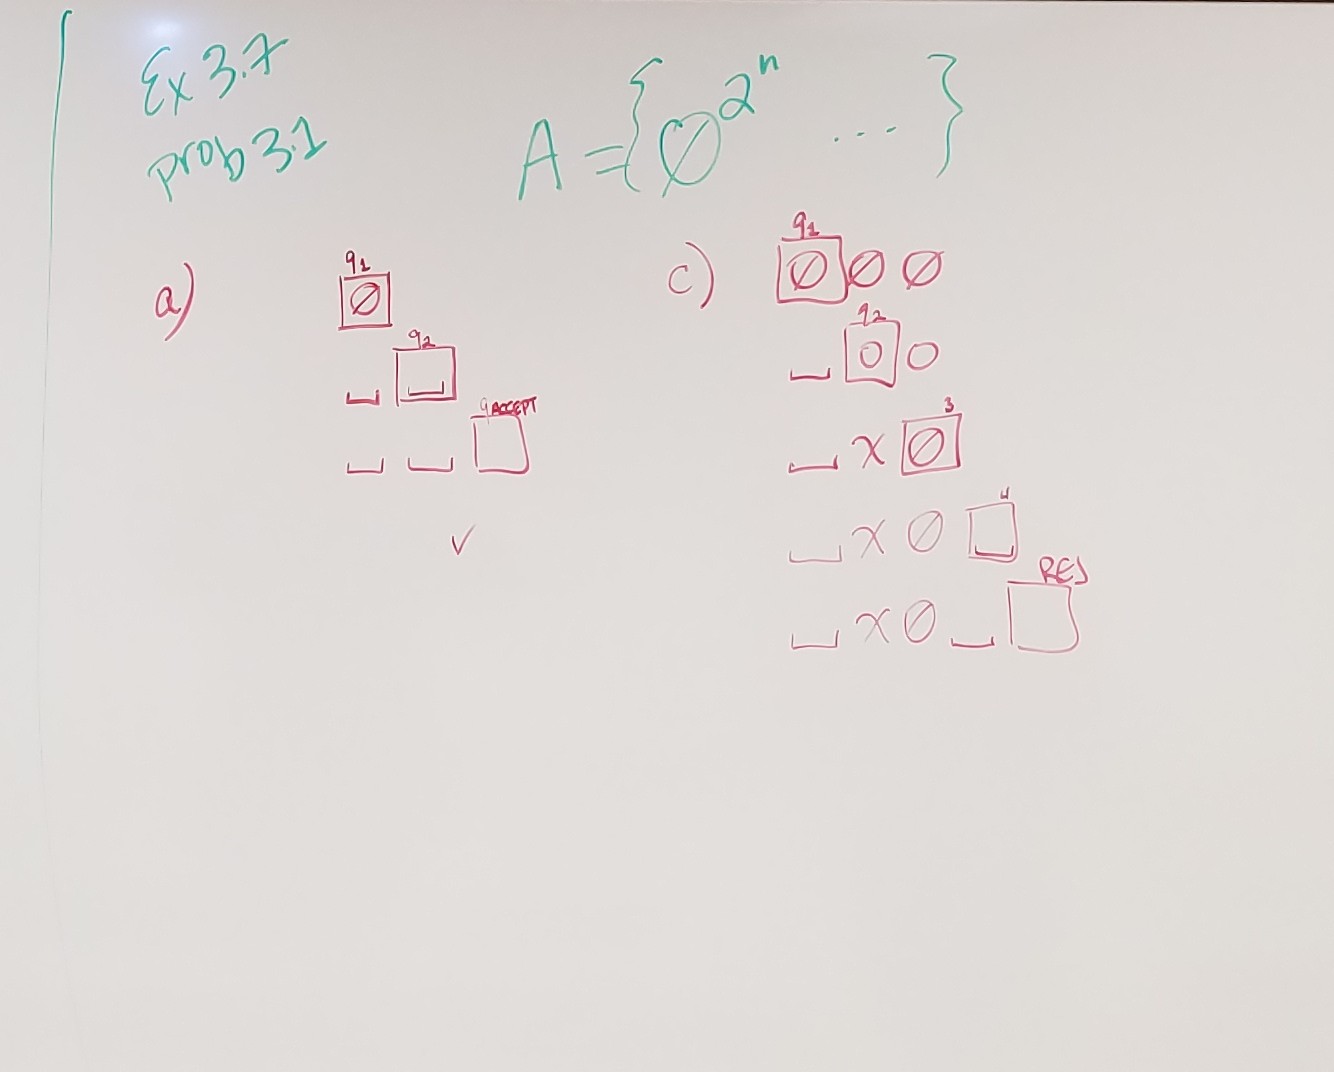 Ex 3.7
prob 3.1
A = {∅^2^n ... }
a)
q1
∅
q2
␣ ␣
qACCEPT
␣ ␣
✓
c)
q1
∅ ∅ ∅
q2
␣ 0 0
3
␣ x ∅
4
␣ x ∅ ␣
REJ
␣ x ∅ ␣